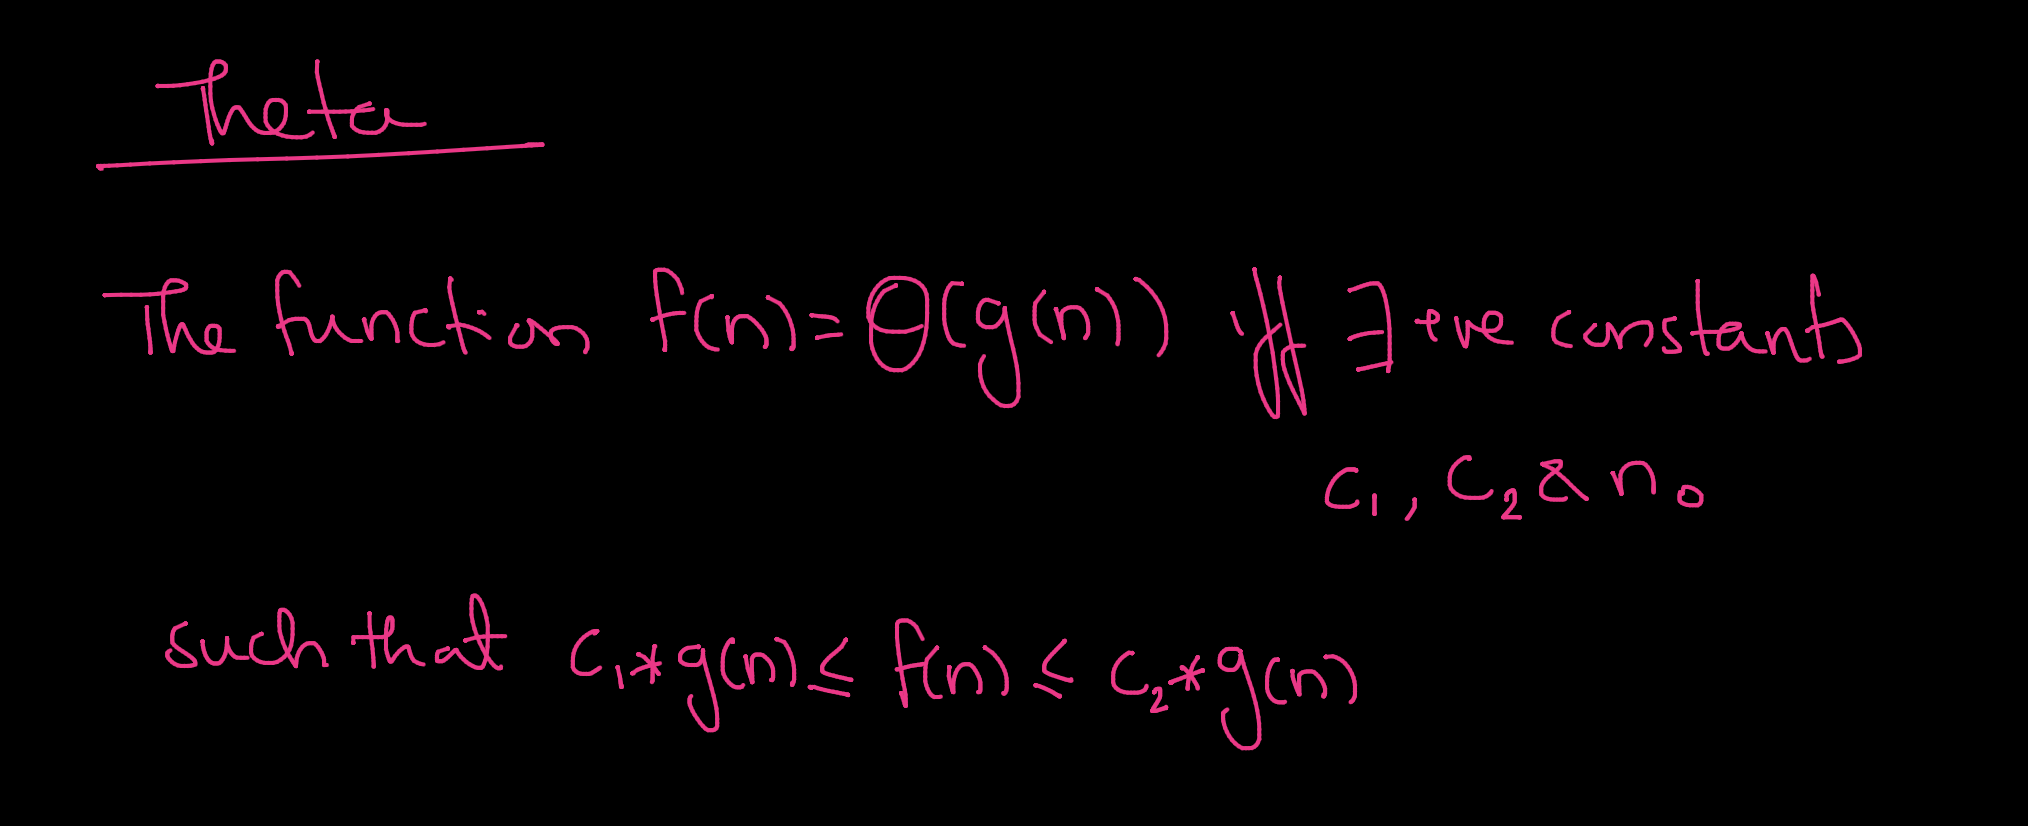 Theta
The function f(n) = Θ(g(n)) iff ∃ +ve constants
c₁, c₂ & n₀
such that c₁*g(n) ≤ f(n) ≤ c₂*g(n)